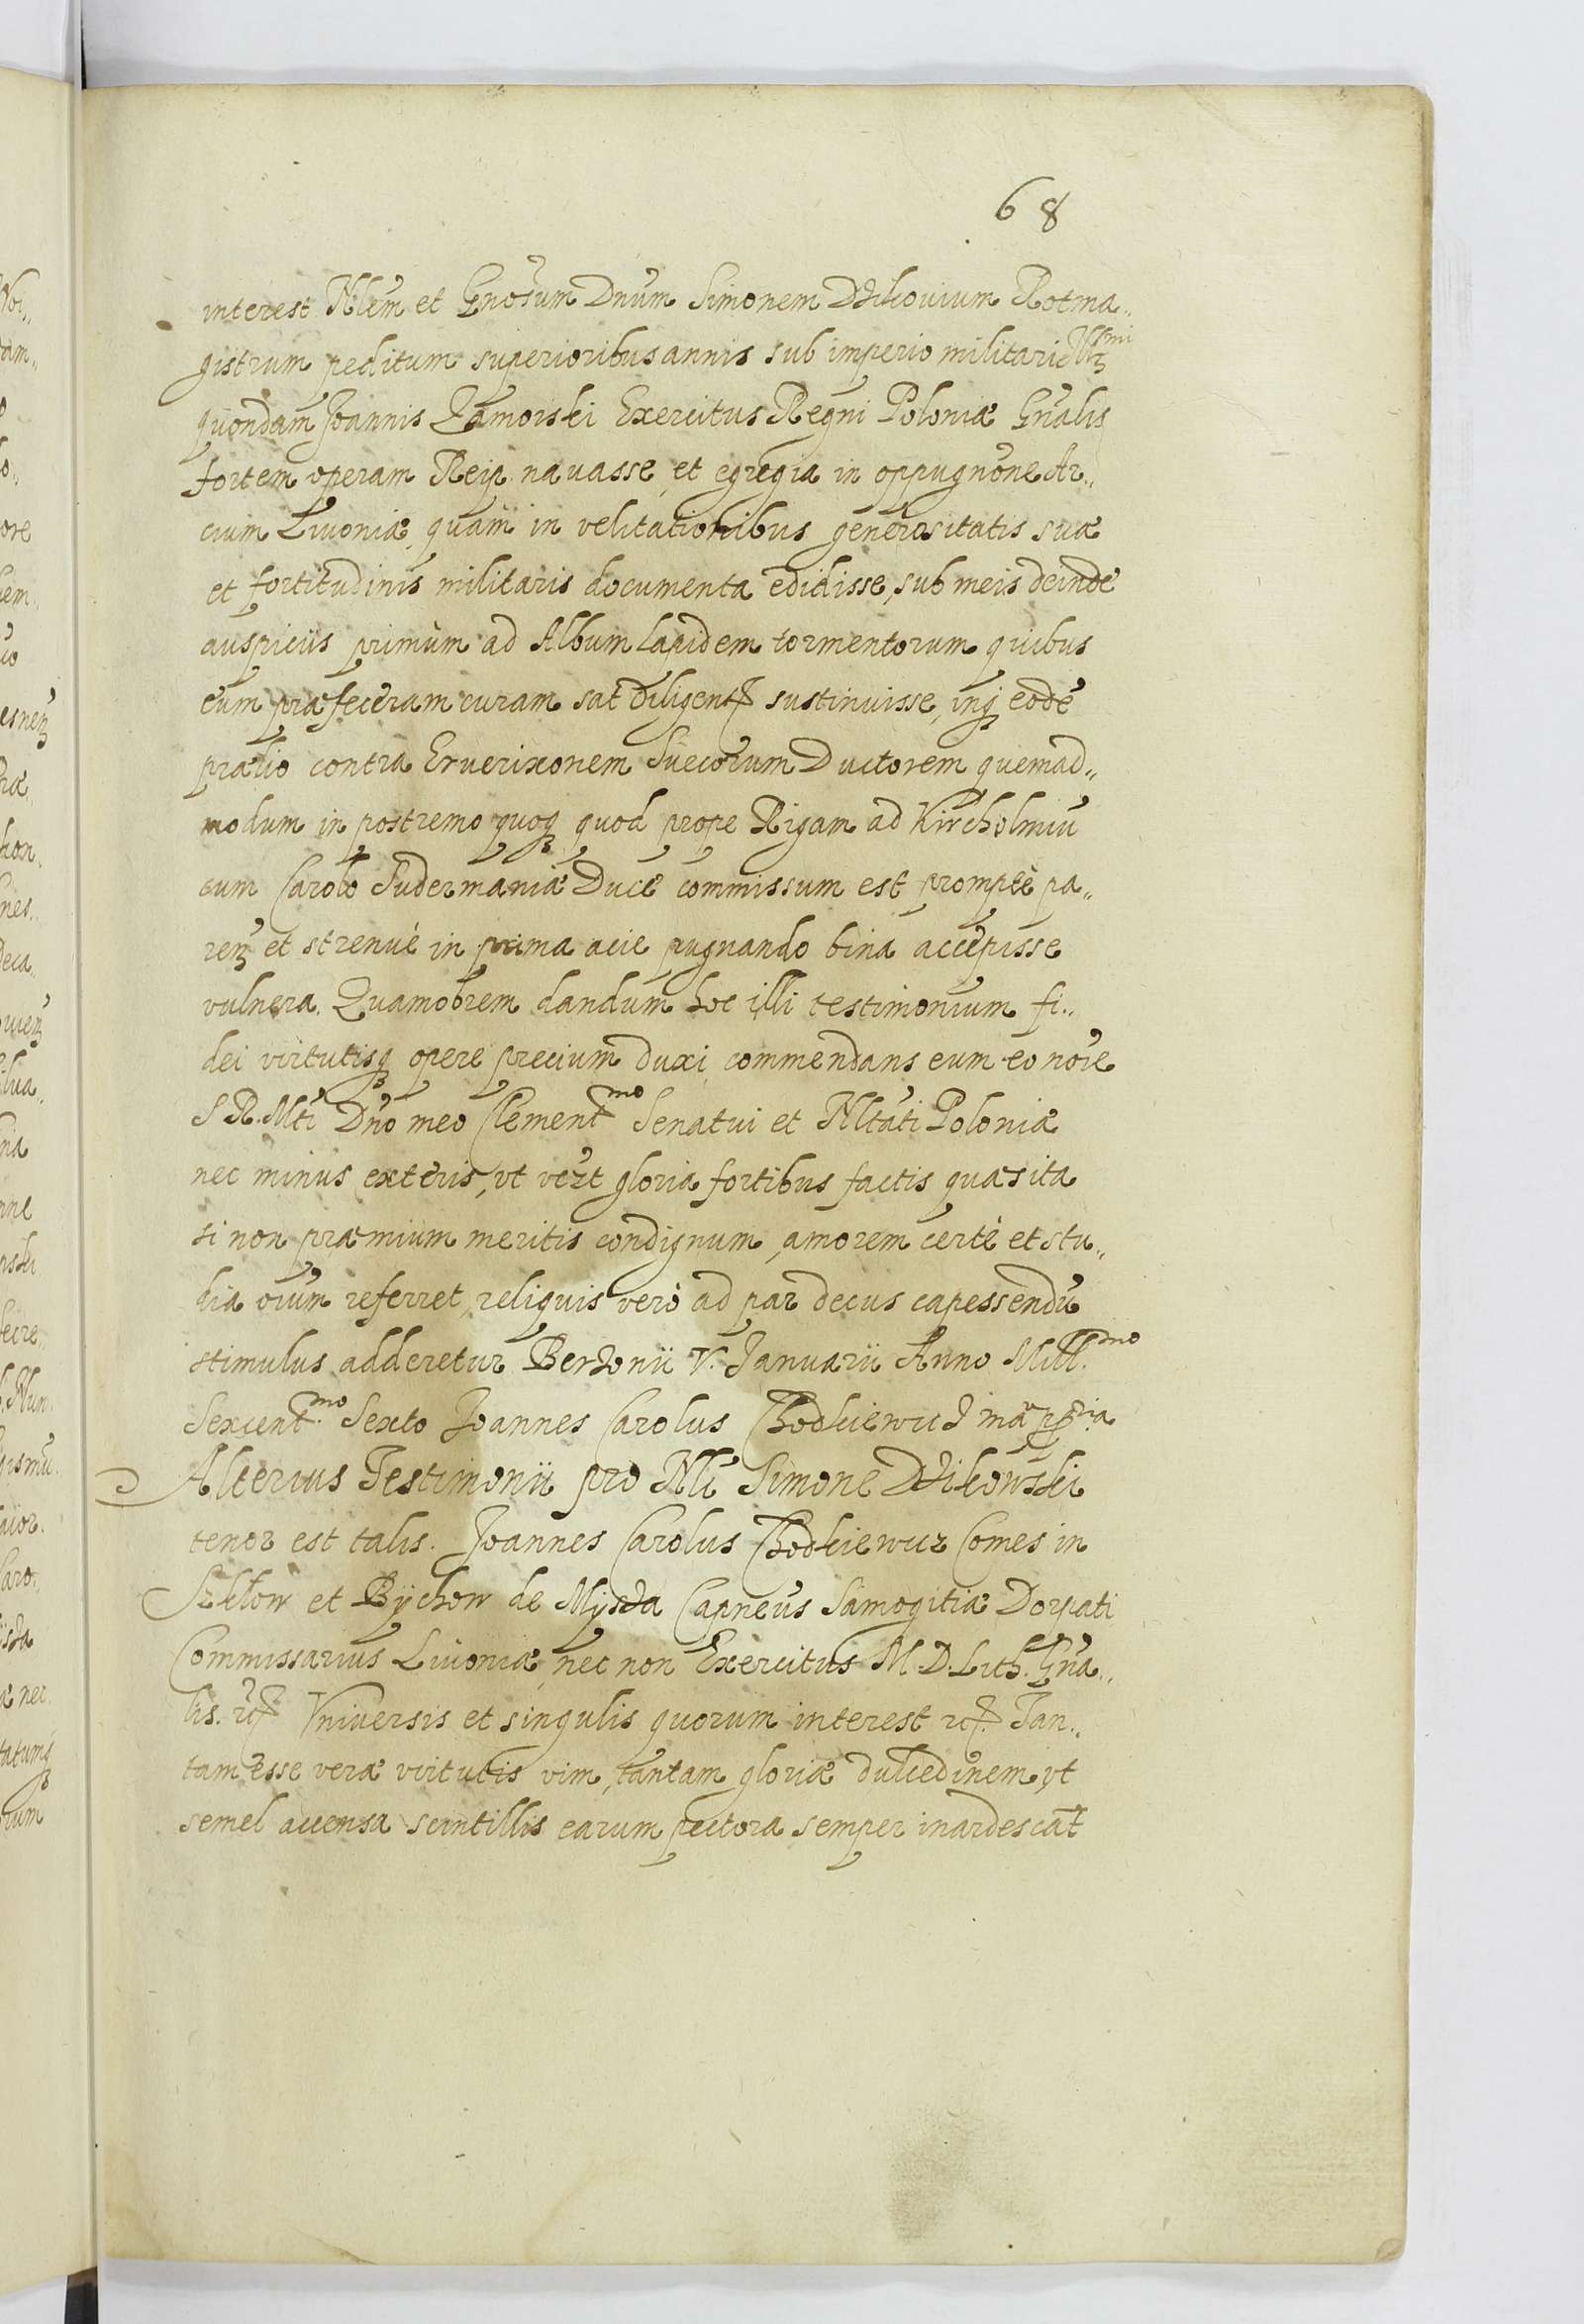 68
interest Nlem et Gnosum Dnum Simonem Dzikovium Rotma„
gistrum peditum superioribus annis sub imperio militari Illmi
quondam Joannis Zamoiski Exercitus Regni Poloniæ Gnalis
fortem operam Reip. navasse, et egregia in oppugnone Ar„
cium Livoniæ, quam in velitationibus generositatis suæ
et fortitudinis militaris documenta edidisse, sub meis deinde
auspiciis primùm ad Album Lapidem tormentorum quibus
eum præfeceram curam sat diligentr sustinuisse, inq eodē
prælio contra Erverixonem Suecorum Ductorem quemad„
modum in postremo quoq quod prope Rigam ad Kircholmiū
cum Carolo Sudermaniæ Duce commissum est promptè pa„
rem et strenuè in prima acie pugnando bina accepisse
vulnera. Quamobrem dandum hoc illi testimonium fi„
dei virtutisq opere precium duxi, commendans eum eo noīe
S. R. Mti Dno meo Clementmo Senatui et Nltati Poloniæ
nec minus exteris, vt vezt gloria fortibus factis quæsita
si non præmium meritis condignum, amorem certè et stu„
dia oium referret, reliquis verò ad par decus capessendū
stimulus adderetur Berzonii V. Januarii Anno Mill.mo
Sexcent.mo Sexto Joannes Carolus Chodkiewicz manu ppria
Alterius Testimonii pro Nli Simone Dzikowski
tenor est talis. Joannes Carolus Chodkiewicz Comes in
Szkłow et Bÿchow de Mysza Capneus Samogitiæ Dorpati
Commissarius Livoniæ, nec non Exercitus M. D. Lith. Gna„
lis. etc. Vniversis et singulis quorum interest etc. Tan„
tam esse veræ virtutis vim, tantam gloriæ dulcedinem, vt
semel accensa scintillis earum pectora semper inardescāt